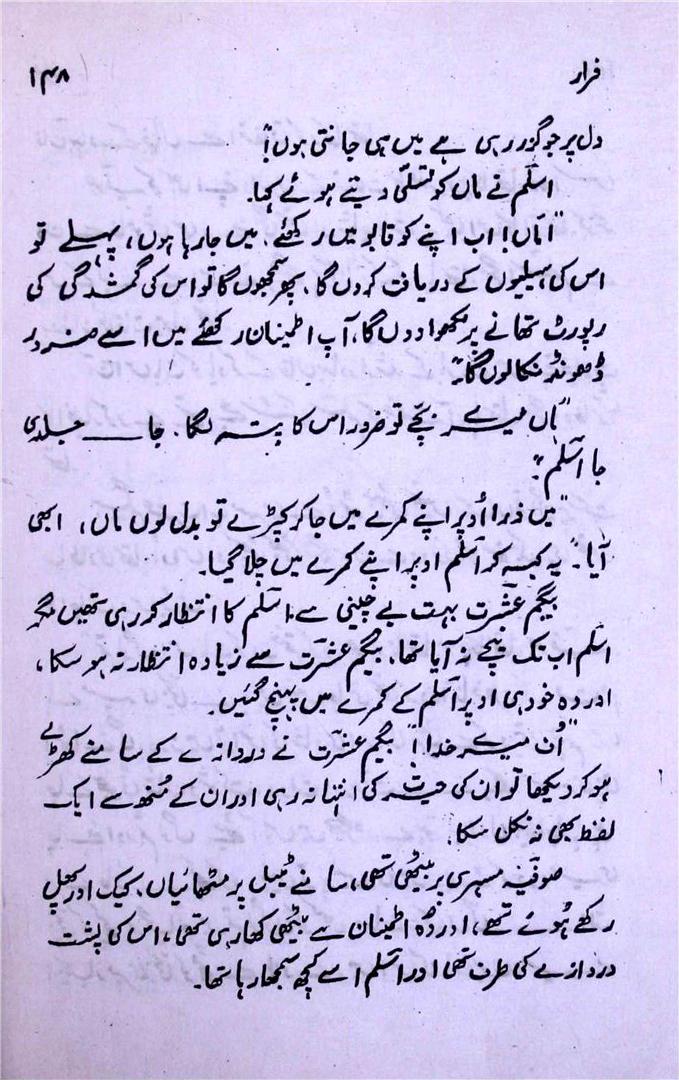 فرار ۱۴۸
دل پر جو گزر رہی ہے میں ہی جانتی ہوں!"
اسلم نے ماں کو تسلی دیتے ہوئے کہا۔
"اماں! اب اپنے کو قابو میں رکھئے۔ میں جا رہا ہوں، پہلے تو
اس کی سہیلیوں کے دریافت کروں گا۔ پھر سمجھوں گا تو اس کی گمشدگی کی
رپورٹ تھانے پر لکھوا دوں گا، آپ اطمینان رکھئے میں اسے ضرور
ڈھونڈ نکالوں گا۔"
"ہاں میرے بچے تو ضرور اس کا پتہ لگا۔ جا ــــ جلدی
جا اسلم۔"
"میں ذرا اوپر اپنے کمرے میں جا کر کپڑے تو بدل لوں ماں، ابھی
آیا۔" یہ کہہ کر اسلم اوپر اپنے کمرے میں چلا گیا۔
بیگم عشرت بہت بے چینی سے اسلم کا انتظار کر رہی تھیں مگر
اسلم اب تک نیچے نہ آیا تھا۔ بیگم عشرت سے زیادہ انتظار نہ ہو سکا،
اور وہ خود ہی اوپر اسلم کے کمرے میں پہنچ گئیں۔
"اُف میرے خدا!" بیگم عشرت نے دروازے کے سامنے کھڑے
ہو کر دیکھا تو ان کی حیرت کی انتہا نہ رہی اور ان کے منھ سے ایک
لفظ بھی نہ نکل سکا۔
صوفیہ مسہری پر بیٹھی تھی، سامنے ٹیبل پر مٹھائیاں، کیک اور پھل
رکھے ہوئے تھے، اور وہ اطمینان سے بیٹھی کھا رہی تھی، اس کی پشت
دروازے کی طرف تھی اور اسلم اسے کچھ سمجھا رہا تھا۔